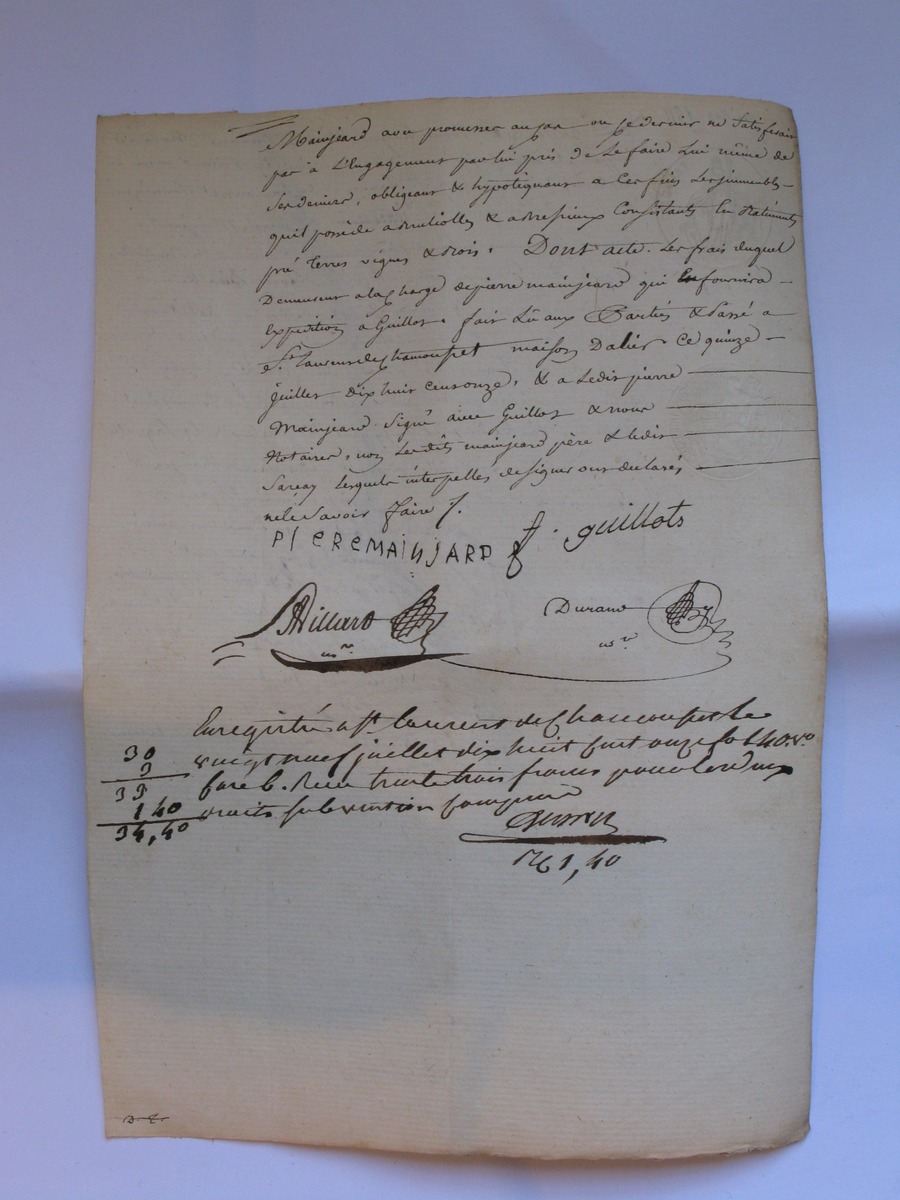 Mainjeard avec promesse au cas ou ce dernier ne satisferait
pas à L'Engagement par lui pris de Le faire Lui même de
Ses deniers, obligeant & hypotéquant a Ces fins Les immeubles
qu'il possède a & a Consistants En Batiments
pré terres vignes & Bois. Dont acte. Les frais duquel
Demeurent a la Charge de pierre mainjeard qui En fournira
Expedition à Guillot. fait Lû aux Parties & Passé a
St. Laurens de Chamousset maison Dalier Ce quinze
juillet dix huit cens onze, & a Ledit pierre
Mainjeard Signé avec Guillot & nous
Notaires, non Lesdits mainjeard père & Ledit
Sarçay lesquels interpellés de signer ont declarés
ne le Savoir faire /.
PIEREMAINJARD f. guillots
Villard Durand
nre nre
Enregistré a St. laurent de Chamousset le
30 vingt neuf juillet dix huit cent onze fo 140 vo
3 Case 6. Recu trente trois francs pour les deux
33 droits subvention comprise
1 40
34,40
R 1,40